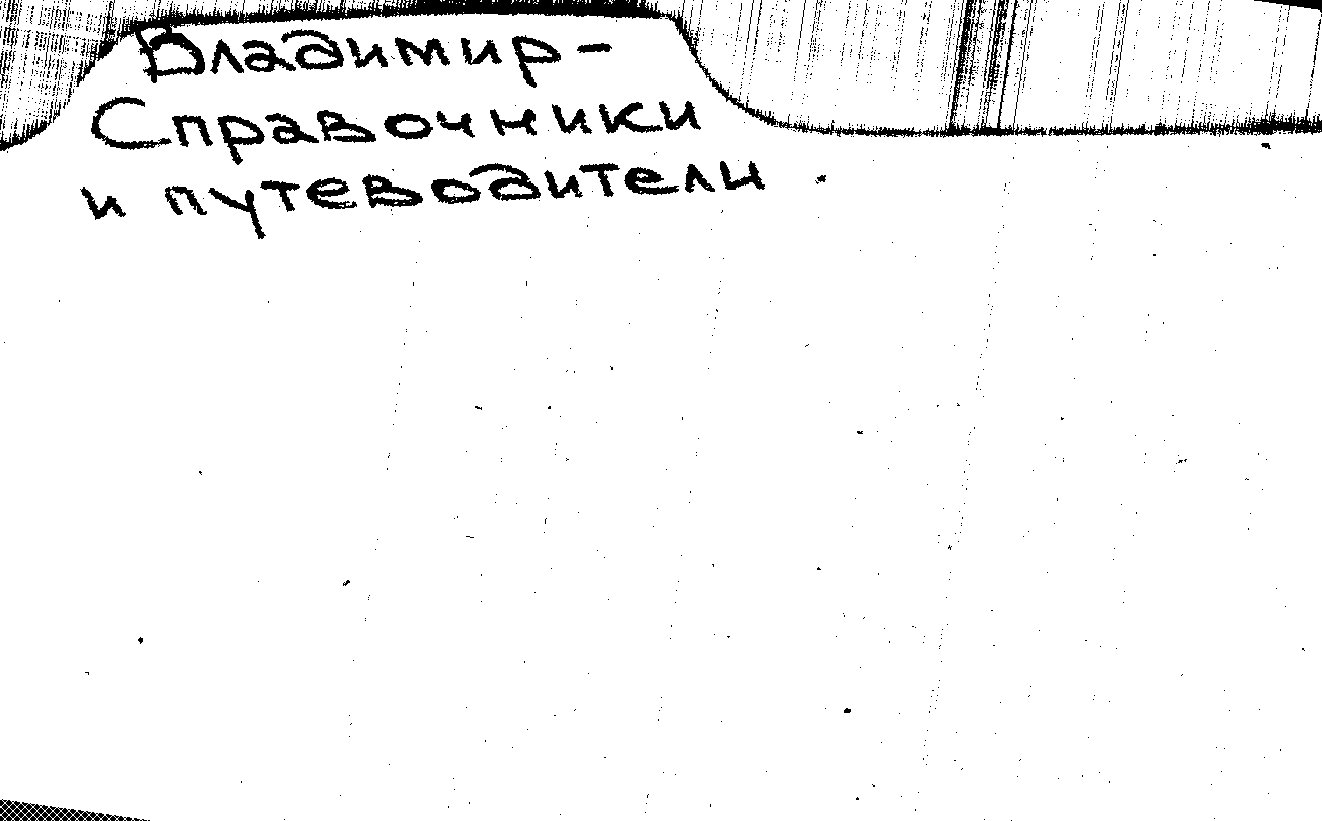 Владимир -
Справочники
и путеводители